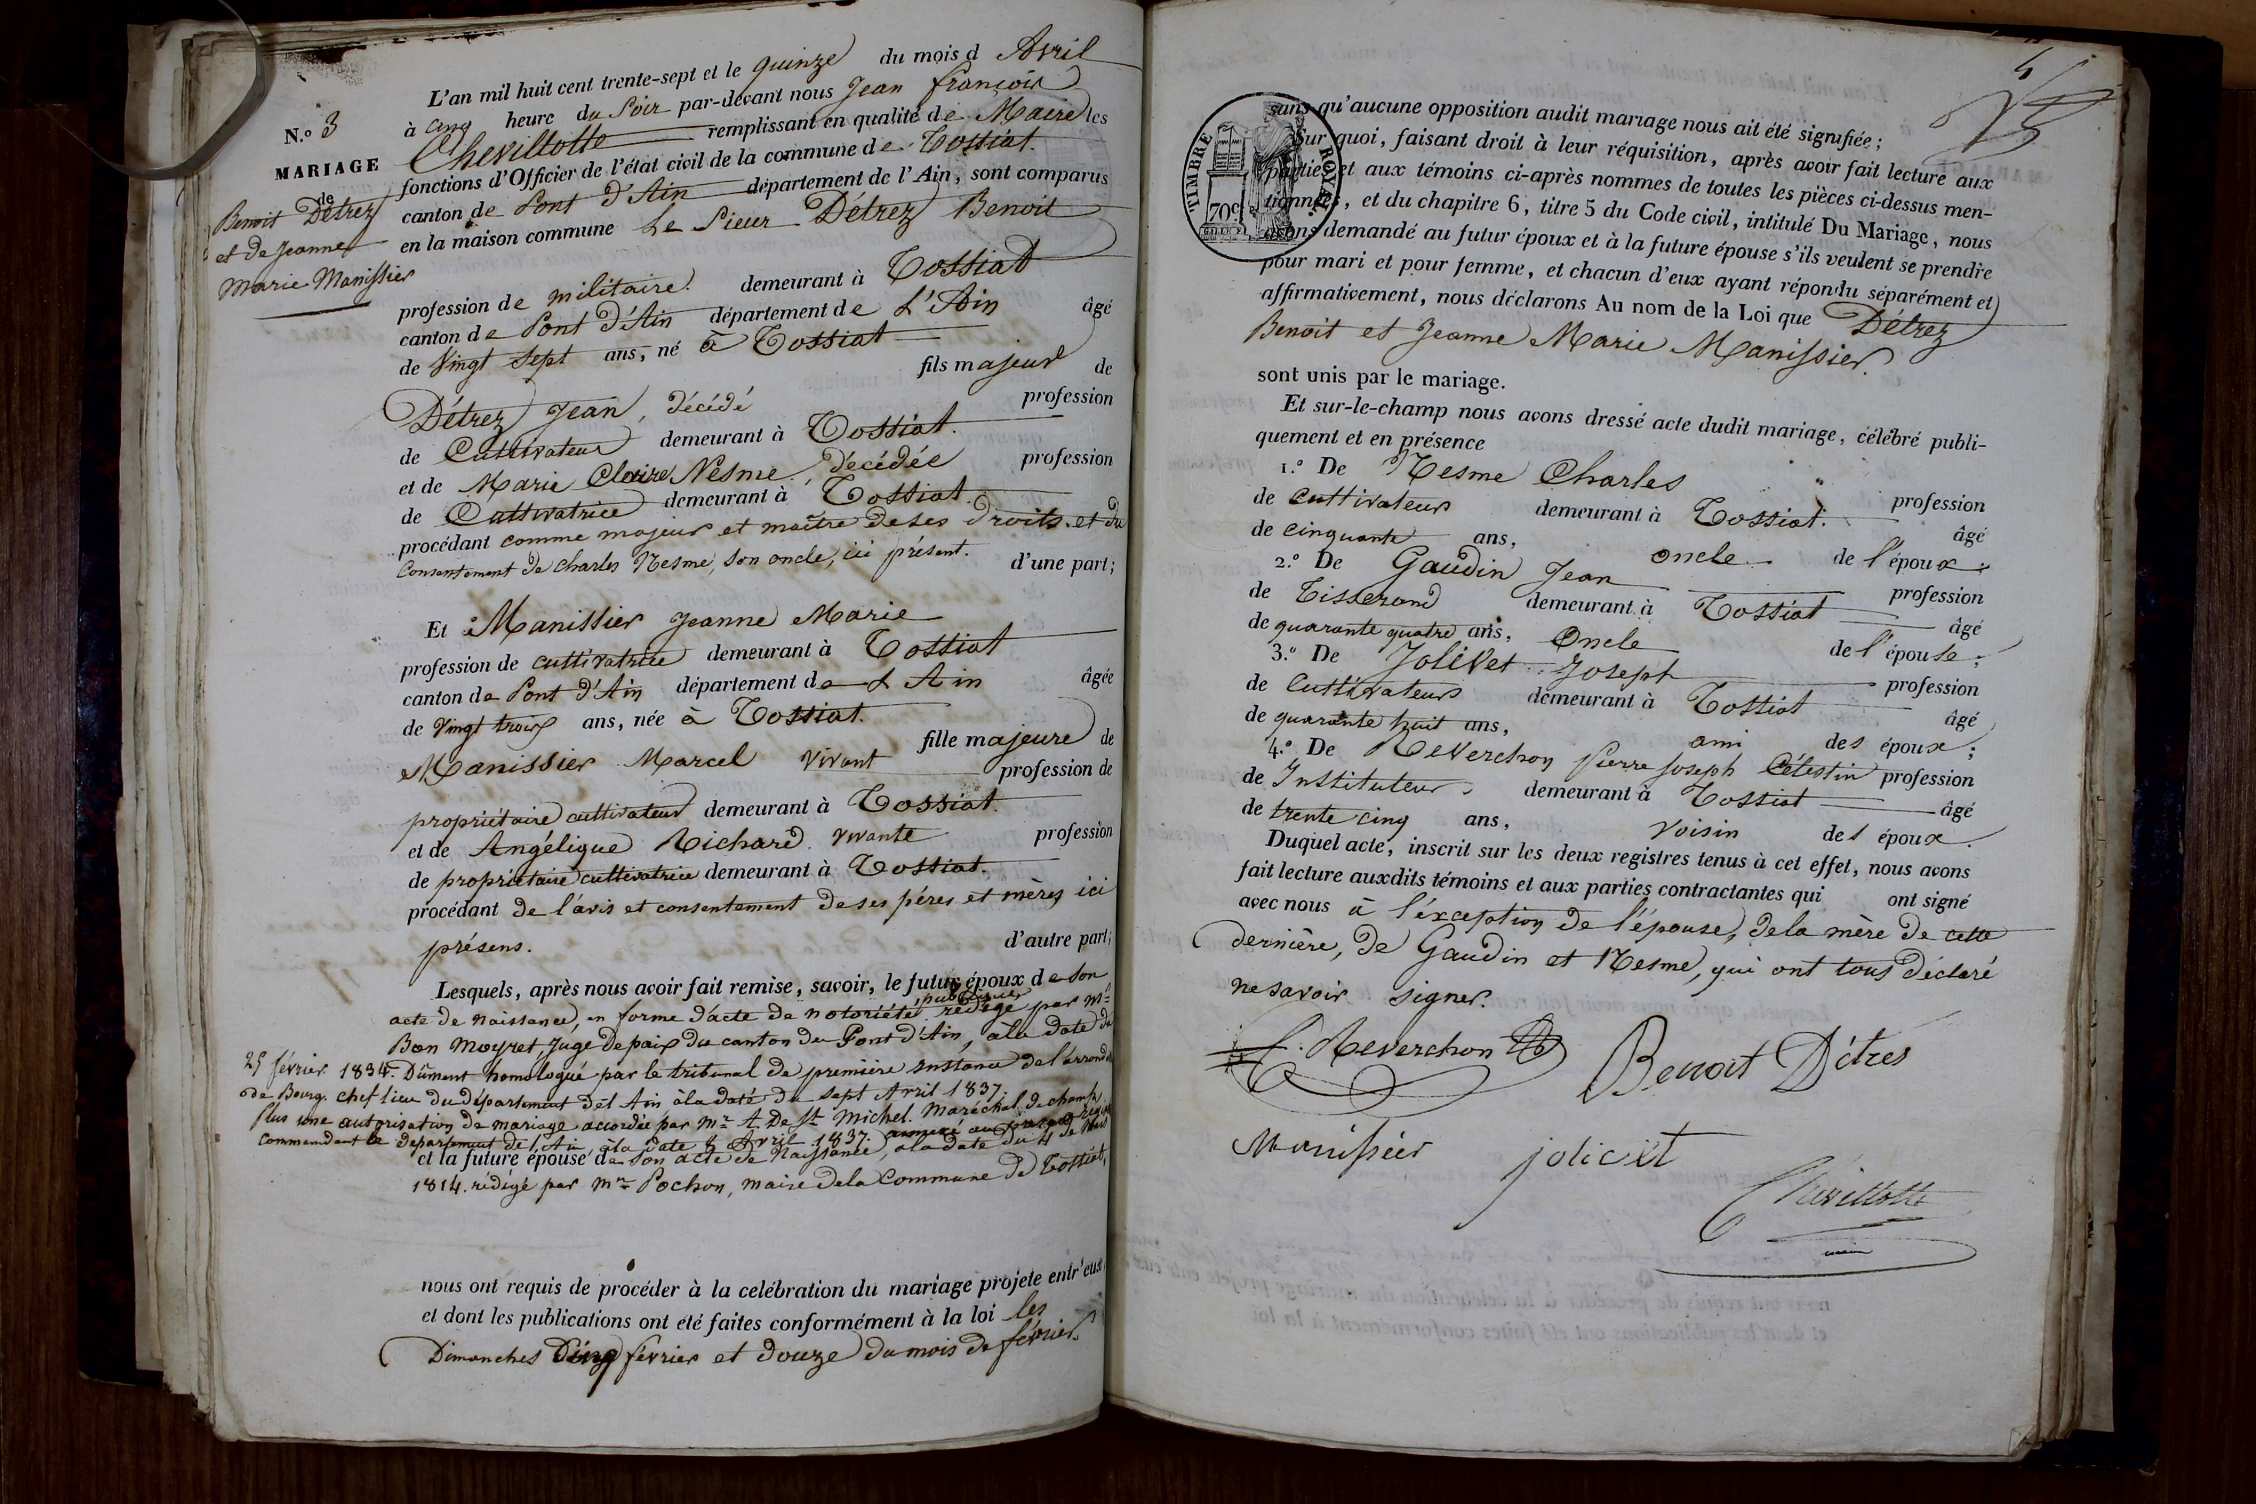 N.o 3
MARIAGE
de
Benoit Détrez
et de Jeanne
Marie Manissier
L'an mil huit cent trente-sept et le quinze du mois d Avril
à cinq heure du Soir par-devant nous Jean François
Chevillotte remplissant en qualité de Maire les
fonctions d'Officier de l'état civil de la commune de Tossiat
canton de Pont d'Ain département de l'Ain, sont comparus
en la maison commune Le Sieur Détrez Benoit
profession de militaire. demeurant à Tossiat
canton de Pont d'Ain département de L'Ain âgé
de Vingt Sept ans, né à Tossiat
fils majeur de
Détrez Jean, décédé profession
de Cultivateur demeurant à Tossiat.
et de Marie Claire Nesme, décédée profession
de Cultivatrice demeurant à Tossiat.
procédant comme majeur et maître de ses droits et du
Consentement de Charles Nesme, son oncle, ici présent. d'une part;
Et Manissier Jeanne Marie
profession de cultivatrice demeurant à Tossiat
canton de Pont d'Ain département de L'Ain âgée
de Vingt trois ans, née à Tossiat.
fille majeure de
Manissier Marcel vivant profession de
propriétaire cultivateur demeurant à Tossiat.
et de Angélique Richard vivante profession
de propriétaire cultivatrice demeurant à Tossiat.
procédant de l'avis et consentement de ses péres et mères ici
présens. d'autre part;
Lesquels, après nous avoir fait remise, savoir, le futur époux de son
acte de Naissance, en forme d'acte de notoriété rédigé par Mr
Bon Moyret, Juge de paix du canton du Pont d'Ain, à la date du
25 février 1834. Dûment homologué par le tribunal de première instance de l'arrondt
de Bourg. chef lieu du département de l'Ain à la date du sept Avril 1837.
Plus une autorisation de mariage accordée par Mr A. De St Michel Maréchal de champ
commandant le département de l'Ain à la date 8 Avril 1837. annexé au présent
et la future épouse de son acte de Naissance, à la date du 4 de Mars
1814. rédigé par Mr Pochon, maire de la Commune de Tossiat,
nous ont requis de procéder à la celébration du mariage projete entr'eux,
et dont les publications ont été faites conformément à la loi les
Dimanches Cinq février et douze du mois de février.
5
TIMBRE ROYAL
70c
sans qu'aucune opposition audit mariage nous ait été signifiée;
Sur quoi, faisant droit à leur réquisition, après avoir fait lecture aux
parties et aux témoins ci-après nommes de toutes les pièces ci-dessus men-
tionnées, et du chapitre 6, titre 5 du Code civil, intitulé Du Mariage, nous
avons demandé au futur époux et à la future épouse s'ils veulent se prendre
pour mari et pour femme, et chacun d'eux ayant répondu séparément et
affirmativement, nous déclarons Au nom de la Loi que Détrez
Benoit et Jeanne Marie Manissier.
sont unis par le mariage.
Et sur-le-champ nous avons dressé acte dudit mariage, célébré publi-
quement et en présence
1.o De Nesme Charles profession
de cultivateur demeurant à Tossiat. âgé
de cinquante ans, oncle de l'époux;
2.o De Gaudin Jean profession
de Tisserand demeurant à Tossiat âgé
de quarante quatre ans, Oncle de l'épouse;
3.o De Jolivet Joseph profession
de Cultivateur demeurant à Tossiat âgé
de quarante huit ans, ami des époux;
4.o De Reverchon Pierre Joseph Célestin profession
de Instituteur demeurant à Tossiat âgé
de trente cinq ans, voisin des époux.
Duquel acte, inscrit sur les deux registres tenus à cet effet, nous avons
fait lecture auxdits témoins et aux parties contractantes qui ont signé
avec nous à l'éxception de l'épouse, de la mère de cette
dernière, de Gaudin et Nesme, qui ont tous déclaré
ne savoir signer.
C. Reverchon Benoit Détres
Manissier jolivet
Chevillotte
maire